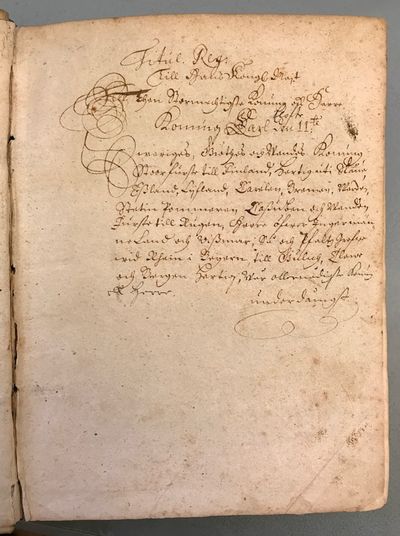 Titul. Reg.
Till Hans Kongl. Maÿtt
Then Stormechtigste Konung och Herre
Konung Carl den 11te
Sweriges, Giöthes och Wendes Konung
Stoorfurste till Finland, Hertig uti Skåne
Estland, Lifland, Carelen, Bremen, Verden
Stetin Pommeren, Cassuben och Wenden
Furste till Rugen, Herre öfwer Ingerman
neLand och Wißmar, Så och Pfaltz Grefwe
wid Rhein i Beyern, till Gülich, Clewe
och Bergen Hertig, Wår allernådigste Konung
och Herre
underdånigst